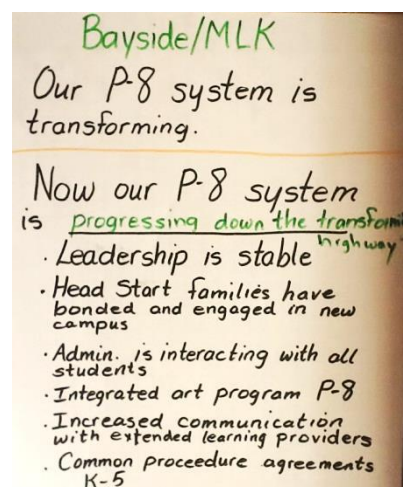 Bayside/MLK
Our P-8 system is
transforming.
Now our P-8 system
is progressing down the transformi
highway
· Leadership is stable
· Head Start families have
bonded and engaged in new
campus
· Admin. is interacting with all
students
· Integrated art program P-8
· Increased communication
with extended learning providers
· Common proceedure agreements
K-5